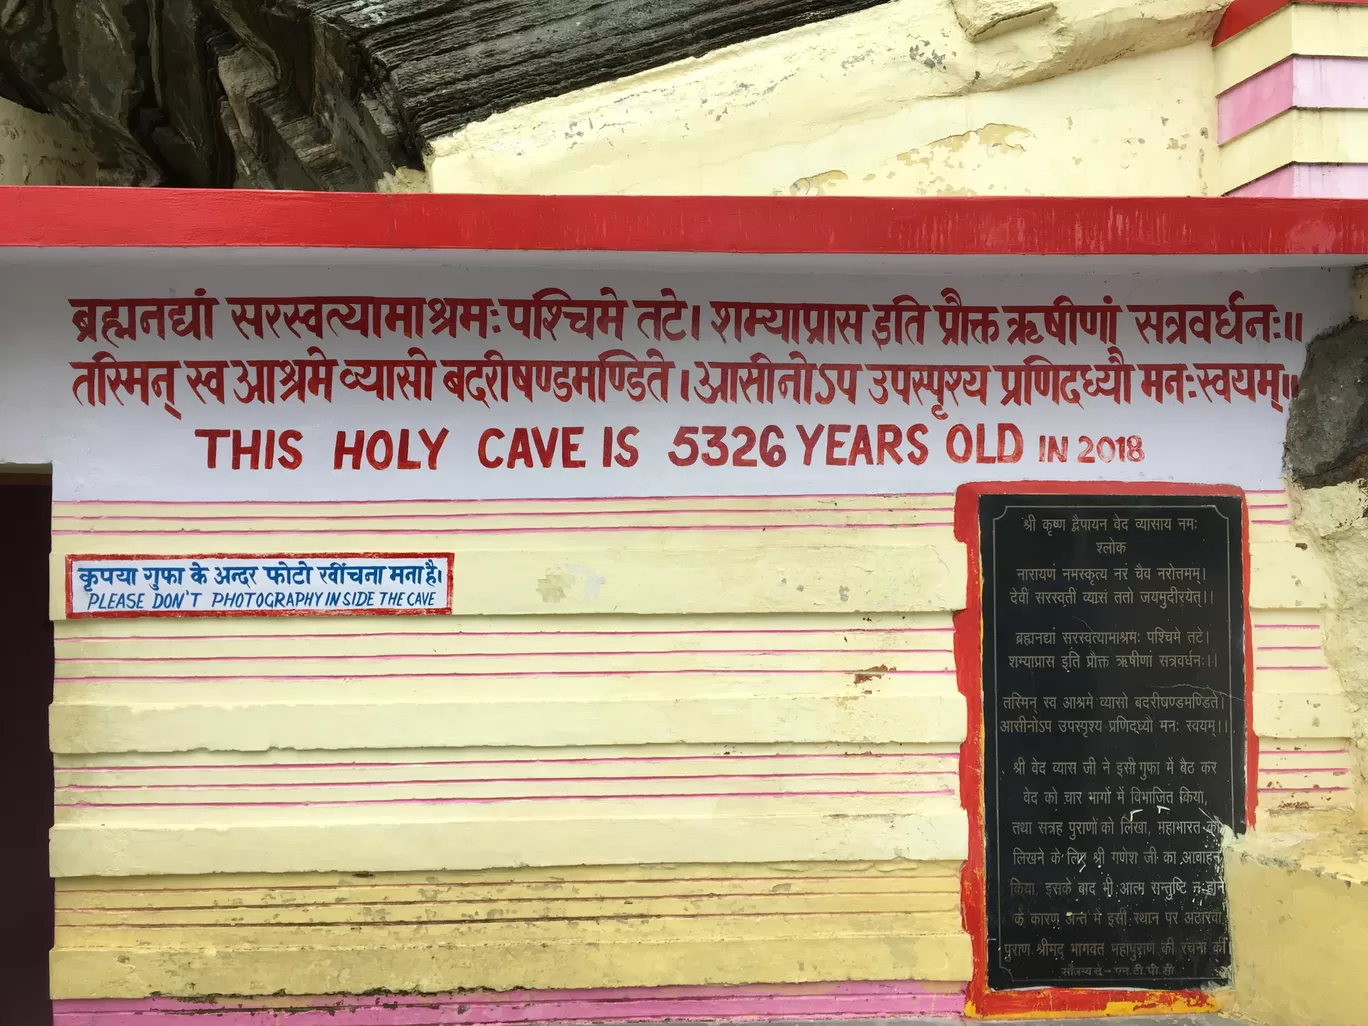 ब्रह्मनद्यां सरस्वत्यामाश्रमः पश्चिमे तटे। शम्याप्रास इति प्रौक्त ऋषीणां सत्रवर्धनः॥
तस्मिन् स्व आश्रमे व्यासो बदरीषण्डमण्डिते। आसीनोऽप उपस्पृश्य प्रणिदध्यौ मनः स्वयम्॥
THIS HOLY CAVE IS 5326 YEARS OLD IN 2018
कृपया गुफा के अन्दर फोटो खींचना मना है।
PLEASE DON'T PHOTOGRAPHY INSIDE THE CAVE
श्री कृष्ण द्वैपायन वेद व्यासाय नमः
श्लोक
नारायणं नमस्कृत्य नरं चैव नरोत्तमम्।
देवीं सरस्वतीं व्यासं ततो जयमुदीरयेत्।।
ब्रह्मनद्यां सरस्वत्यामाश्रमः पश्चिमे तटे।
शम्याप्रास इति प्रौक्त ऋषीणां सत्रवर्धनः।।
तस्मिन् स्व आश्रमे व्यासो बदरीषण्डमण्डिते।
आसीनोऽप उपस्पृश्य प्रणिदध्यौ मनः स्वयम्।।
श्री वेद व्यास जी ने इसी गुफा में बैठ कर
वेद को चार भागों में विभाजित किया,
तथा सत्रह पुराणों को लिखा, महाभारत को
लिखने के लिए श्री गणेश जी का आवाहन
किया, इसके बाद भी आत्म सन्तुष्टि न होने
के कारण अन्त में इसी स्थान पर अठारवां
पुराण श्रीमद् भागवत महापुराण की रचना की
सौजन्य से - एन.टी.पी.सी